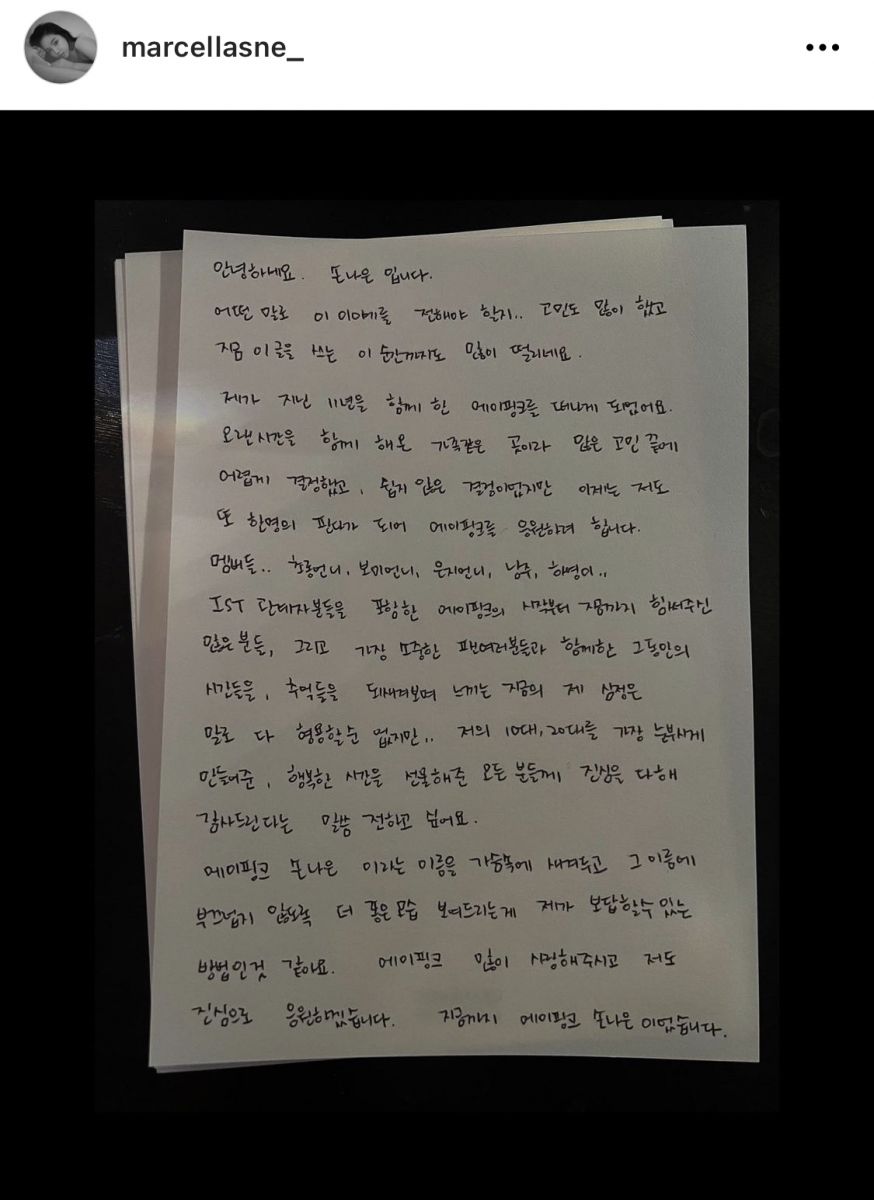 marcellasne_
안녕하세요. 손나은 입니다.
어떤 말로 이 이야기를 전해야 할지.. 고민도 많이 했고
지금 이 글을 쓰는 이 순간까지도 많이 떨리네요.
제가 지난 11년을 함께 한 에이핑크를 떠나게 되었어요.
오랜시간을 함께 해온 가족같은 곳이라 많은 고민 끝에
어렵게 결정했고, 쉽지 않은 결정이었지만 이제는 저도
또 한명의 판다가 되어 에이핑크를 응원하려 합니다.
멤버들.. 초롱언니, 보미언니, 은지언니, 남주, 하영이..
IST 관계자분들을 포함한 에이핑크의 시작부터 지금까지 힘써주신
많은 분들, 그리고 가장 소중한 팬여러분들과 함께한 그동안의
시간들을, 추억들을 되새겨보며 느끼는 지금의 제 심정은
말로 다 형용할순 없지만.. 저의 10대, 20대를 가장 눈부시게
만들어준, 행복한 시간을 선물해준 모든 분들께 진심을 다해
감사드린다는 말씀 전하고 싶어요.
에이핑크 손나은 이라는 이름을 가슴속에 새겨두고 그 이름에
부끄럽지 않도록 더 좋은 모습 보여드리는게 제가 보답할수 있는
방법인것 같아요. 에이핑크 많이 사랑해주시고 저도
진심으로 응원하겠습니다. 지금까지 에이핑크 손나은 이었습니다.